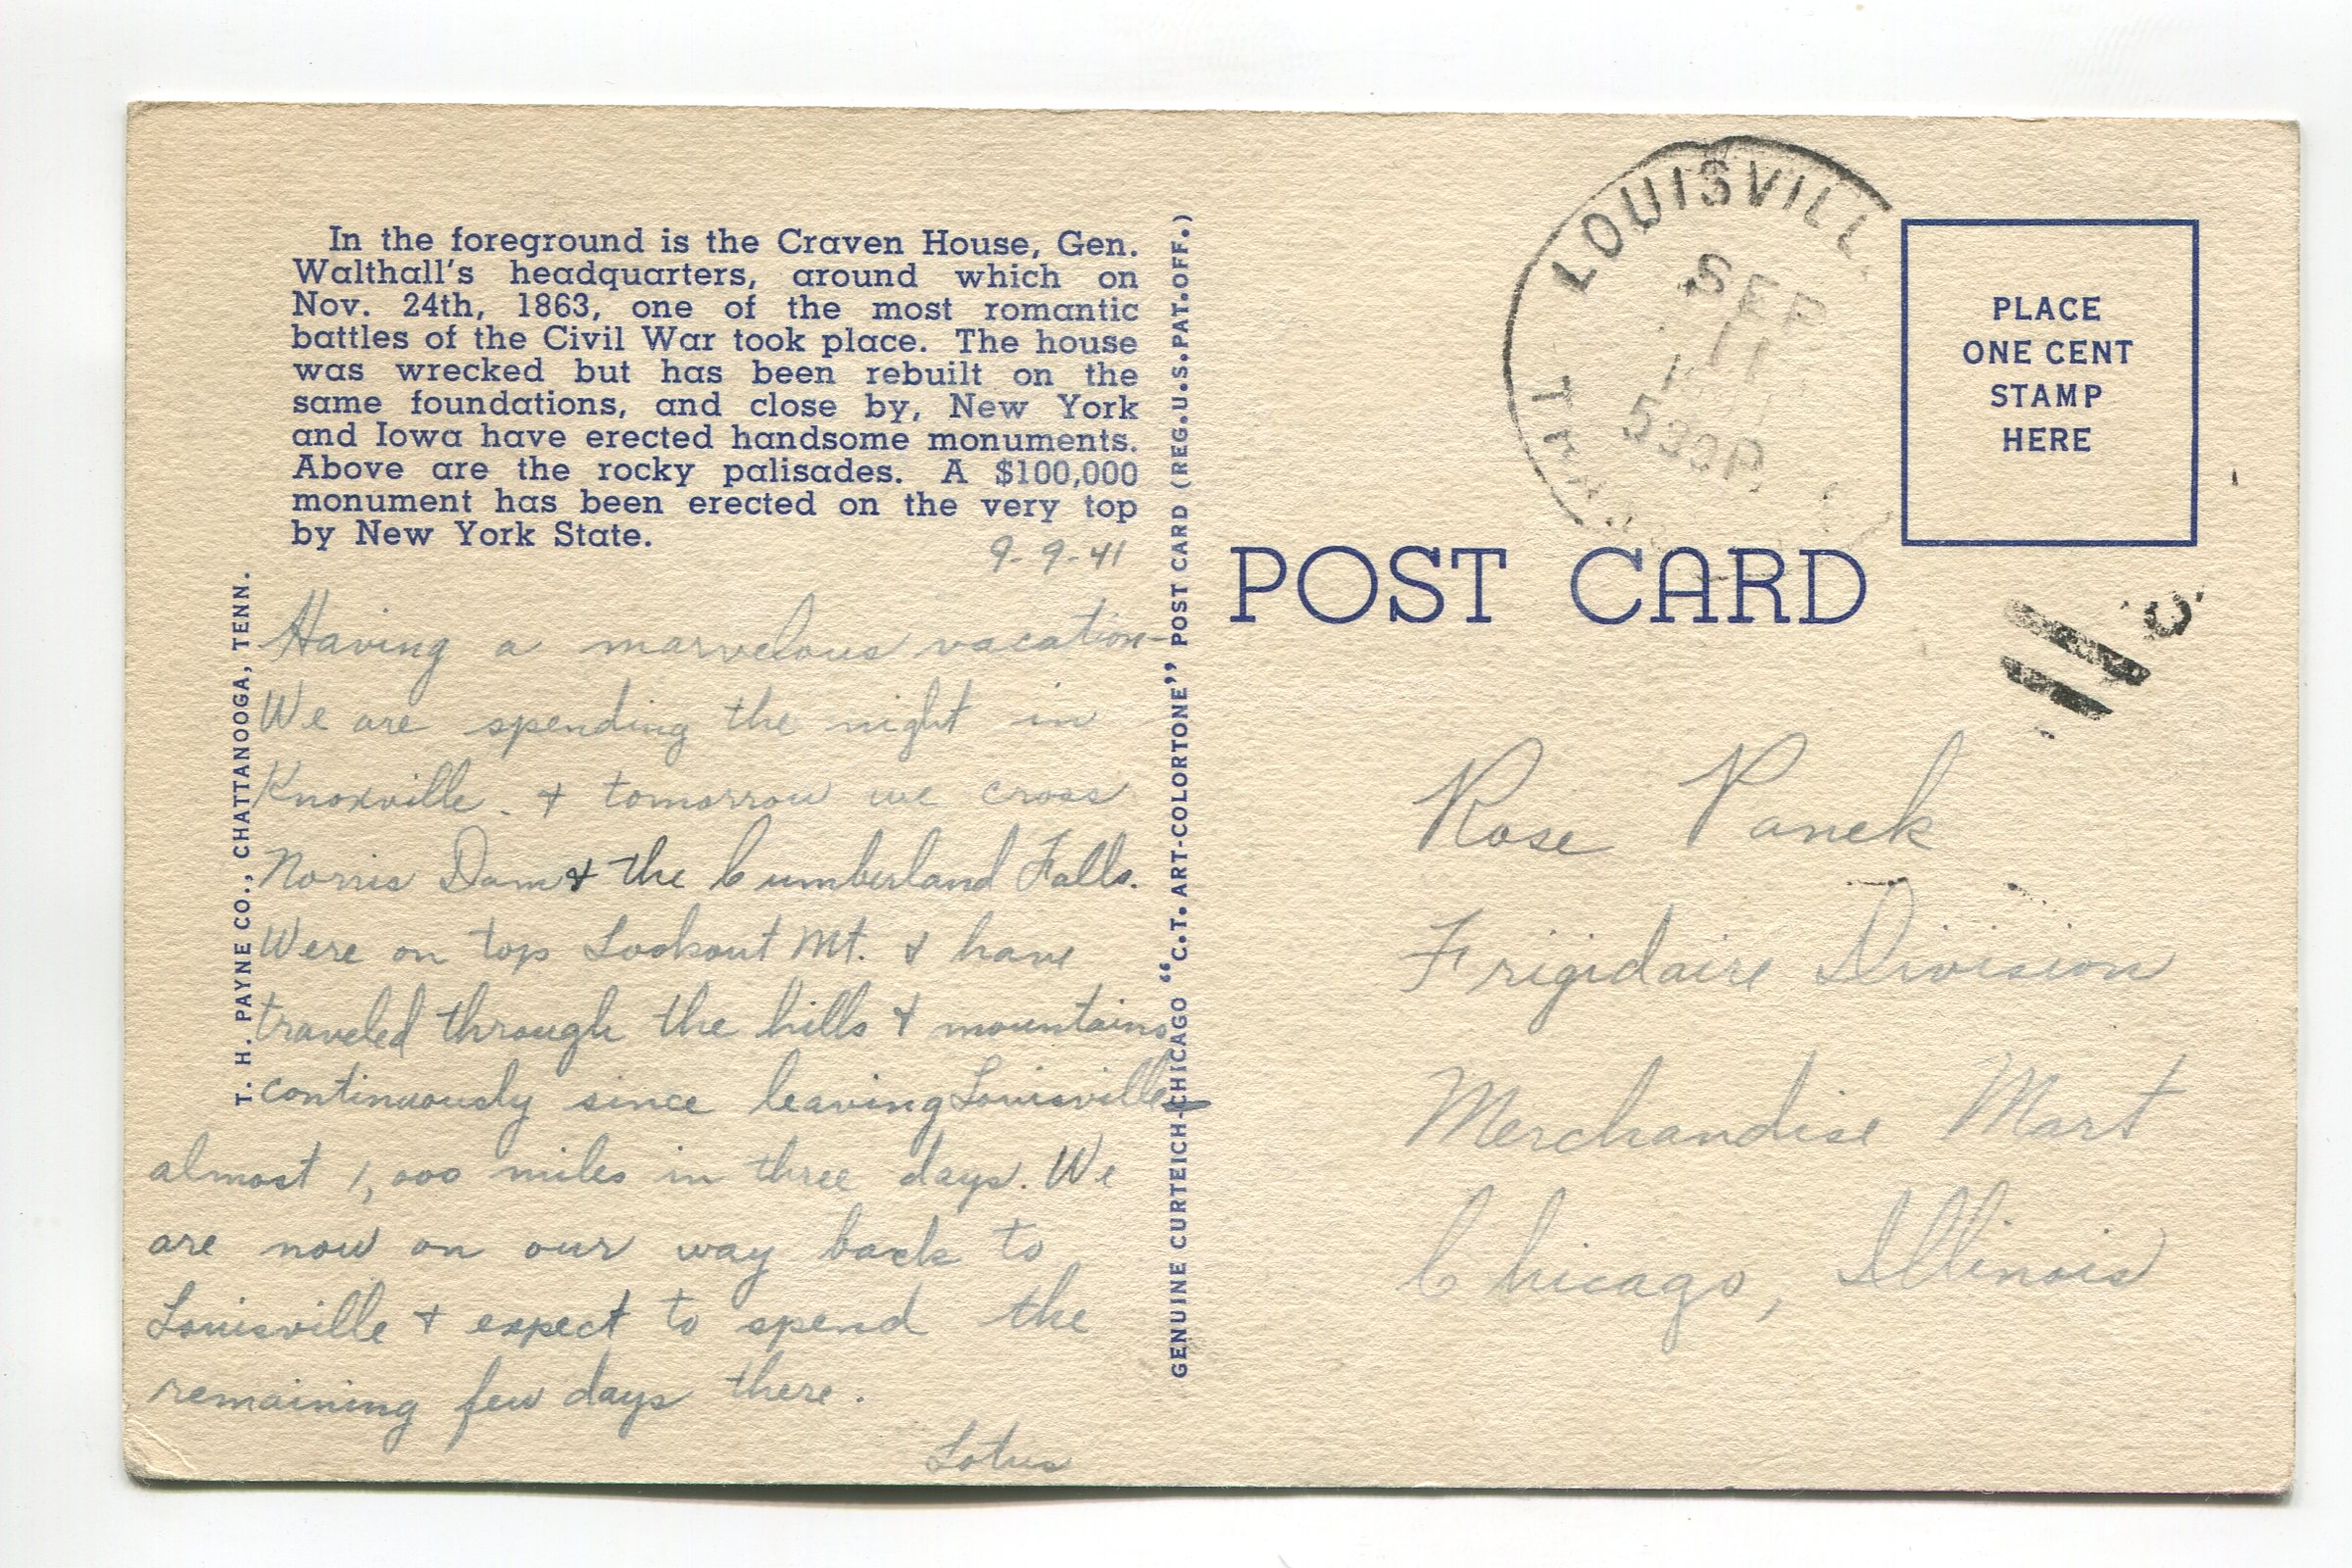 In the foreground is the Craven House, Gen.
Walthall's headquarters, around which on
Nov. 24th, 1863, one of the most romantic
battles of the Civil War took place. The house
was wrecked but has been rebuilt on the
same foundations, and close by, New York
and Iowa have erected handsome monuments.
Above are the rocky palisades. A $100,000
monument has been erected on the very top
by New York State.
9-9-41
Having a marvelous vacation-
We are spending the night in
Knoxville. & tomorrow we cross
Norris Dam & the Cumberland Falls.
Were on top Lookout Mt. & have
traveled through the hills & mountains
continuously since leaving Louisville-
almost 1,000 miles in three days. We
are now on our way back to
Louisville & expect to spend the
remaining few days there.
Lotus
T. H. PAYNE CO., CHATTANOOGA, TENN.
GENUINE CURTEICH-CHICAGO "C.T. ART-COLORTONE" POST CARD (REG.U.S.PAT.OFF.)
LOUISVILL
SEP
11
530P
PLACE
ONE CENT
STAMP
HERE
POST CARD
Rose Panek
Frigidaire Division
Merchandise Mart
Chicago, Illinois